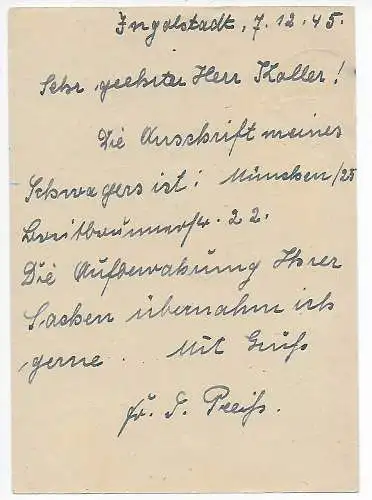 Ingolstadt, 7.12.45.
Sehr geehrter Herr Koller!
Die Anschrift meines
Schwagers ist: München/25
Breitbrunnerstr. 22.
Die Aufbewahrung Ihrer
Sachen übernahm ich
gerne. Mit Gruß
Fr. S. Preiß.